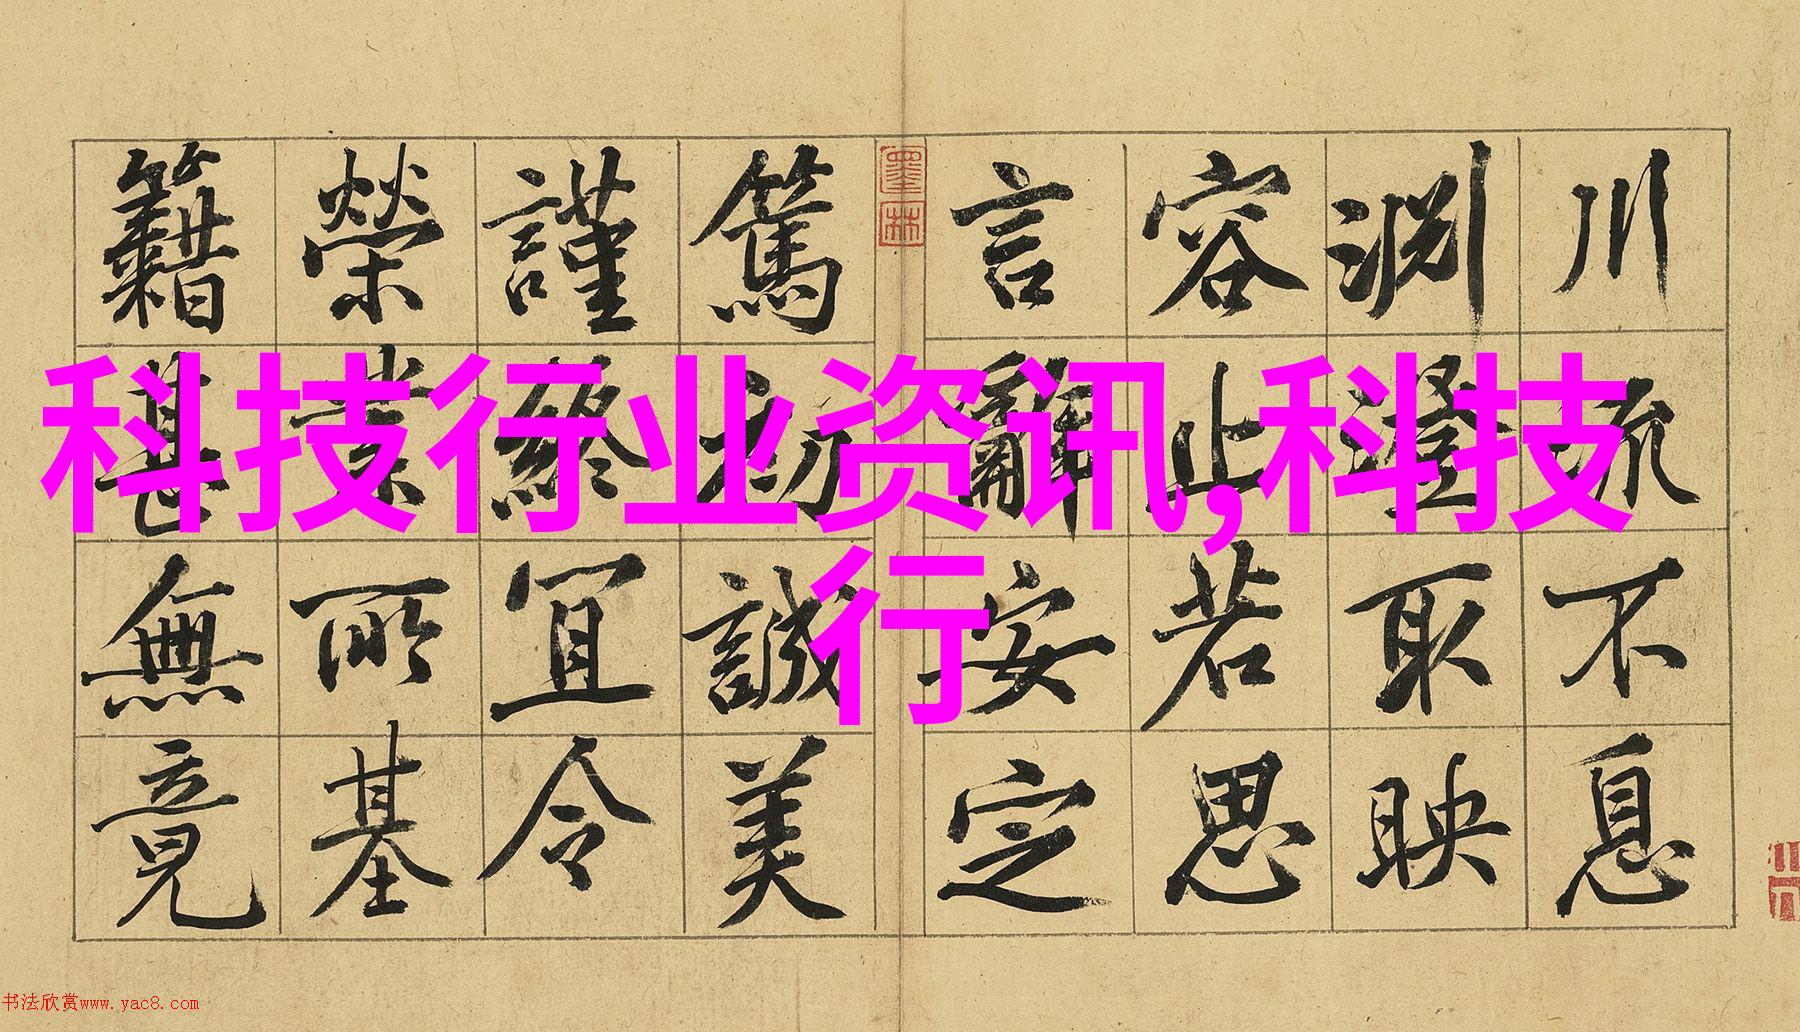 川流不息
淵澄取映
容止若思
言辭安定
墨林
篤初誠美
謹終宜令
榮業所基
籍甚無竟
科技行业资讯,科技
行
书法欣赏www.yac8.com